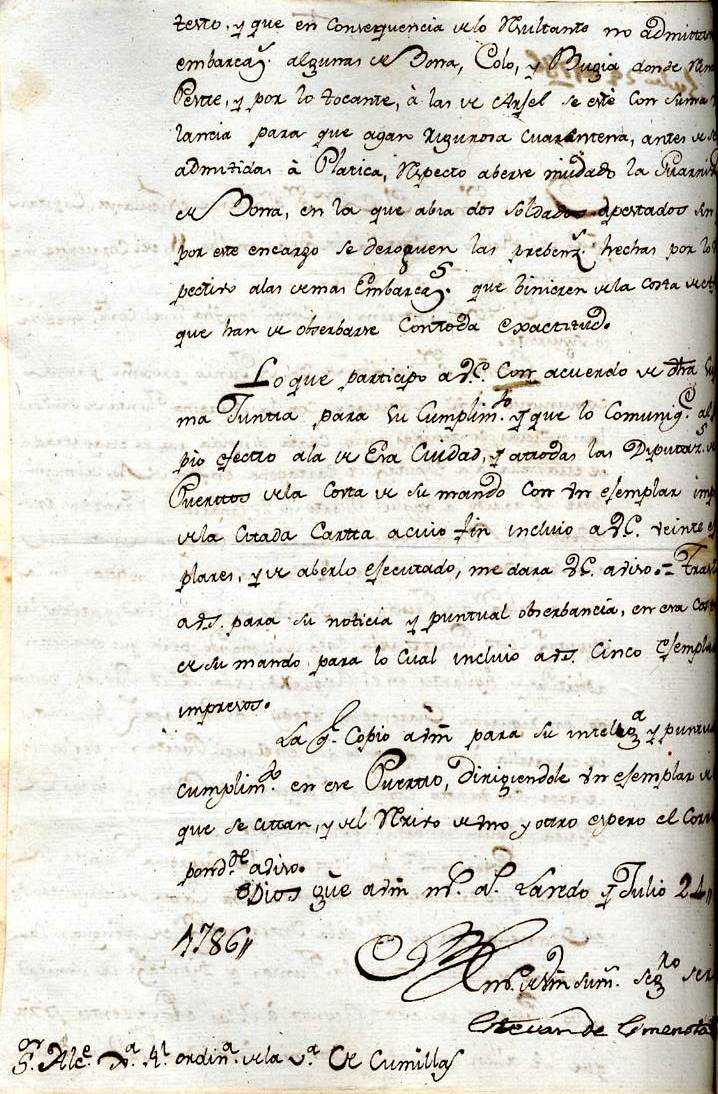 texto, y que en Consequencia de lo Resultante no admittan
embarcaz.s algunas de Bona, Colo, y Bugia donde
Peste, y por lo tocante, à las de Argel se estè con suma
lancia para que agan rigurosa cuarentena, antes de
admitidas à Platica, Respecto aberse mudado la Guarni
de Bona, en la que abia dos soldados apestados sin
por este encargo se deroguen las prebenz.s hechas por lo
pectivo a las demas Embarcaz.s que binieren de la Costa de
que han de obserbarse Contoda exactitud.
Lo que participo a V.E. Con acuerdo de dha Su
ma Juntta para su Cumplim.to y que lo Comuniq.e al
pio efectto a la de Esa Ciudad, y attodas las Diputaz.s
Puerttos de la Costa de su mando con un exemplar imp
de la Cittada Cartta a cuio fin incluio a V.E. veinte
plares, y de aberlo executado, me dara V.E. aviso.= Tras
a VS. para su noticia y puntual obserbancia, en esa Cos
de su mando, para lo Cual incluio a VS. Cinco Exempla
impresos.
La q.e Copio a Vm para su intelig.a y puntu
cumplim.to en ese Puertto, dirigiendole un exemplar de
que se cittan, y del Reciro de uno y ottro espero el Corr
pond.te aviso.
Dios gue a Vm m.s a.s Laredo y Julio 24,,
1786,,
B.l.m. de Vm su m. seg.ro ser
Estevan de
S.or Alc.e R.l ordin.o de la v.a de Cumillas